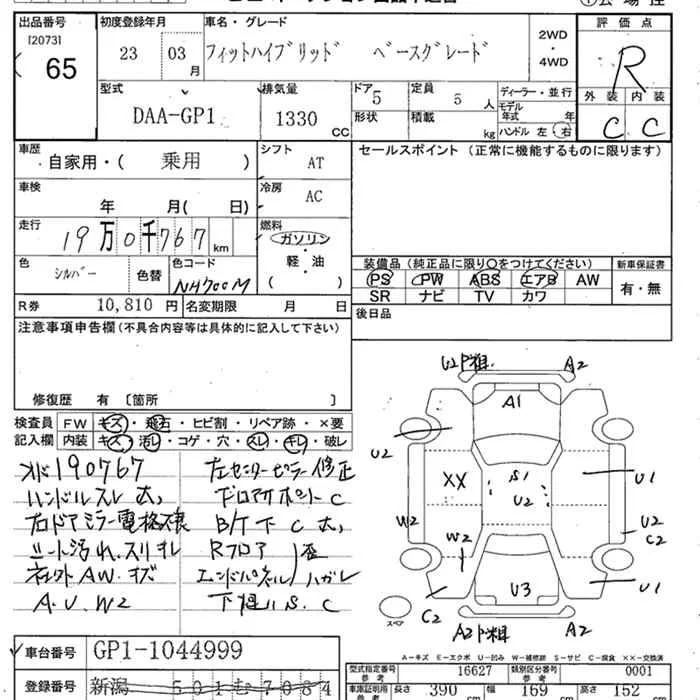 出品番号
[2073]
65
初度登録年月
23 03 月
車名・グレード
フィットハイブリッド ベースグレード
2WD
・
4WD
評価点
R
外装 内装
C C
型式
DAA-GP1
排気量
1330 CC
ドア 5
形状
定員 5 人
積載 kg
ディーラー・並行
モデル
年式 年
ハンドル 左・右
車歴
自家用・( 乗用 )
シフト
AT
セールスポイント (正常に機能するものに限ります)
車検
年 月( 日)
冷房
AC
走行
19万0千767 km
燃料
ガソリン
・
軽・油
( )
色
シルバー
色替
色コード
NH700M
装備品 (純正品に限り○をつけてください)
PS PW ABS エアB AW
SR ナビ TV カワ
新車保証書
有・無
R券 10,810 円
名変期限 月 日
後日品
注意事項申告欄 (不具合内容等は具体的に記入して下さい)
修復歴 有 〔箇所 〕
検査員
記入欄
FW キズ・飛石・ヒビ割・リペア跡・×要
内装 キズ・汚レ・コゲ・穴・スレ・キレ・破レ
190767
ハンドルスレ 大
右ドアミラー電格不良
シート汚れ.スリキレ
社外AW.キズ
A.U.W2
左センターピラー修正
下回りサポート C
B/T下 C 大
Rフロア
エンドパネル 歪 ハガレ
下廻りS.C
U2 P相 A2
A1
U2
XX
S1
U2
U1
W2
W2
U2
C2
U3
U1
C2
A2 P相 A2
スペア
A-キズ E-エクボ U-凹み W-補修跡 S-サビ C-腐食 XX-交換済
車台番号 GP1-1044999
登録番号 新潟 501 む 7084
型式指定番号
参考
16627
類別区分番号
参考
0001
車庫証明用
参考
長さ 390 cm
幅 169 cm
高さ 152 cm